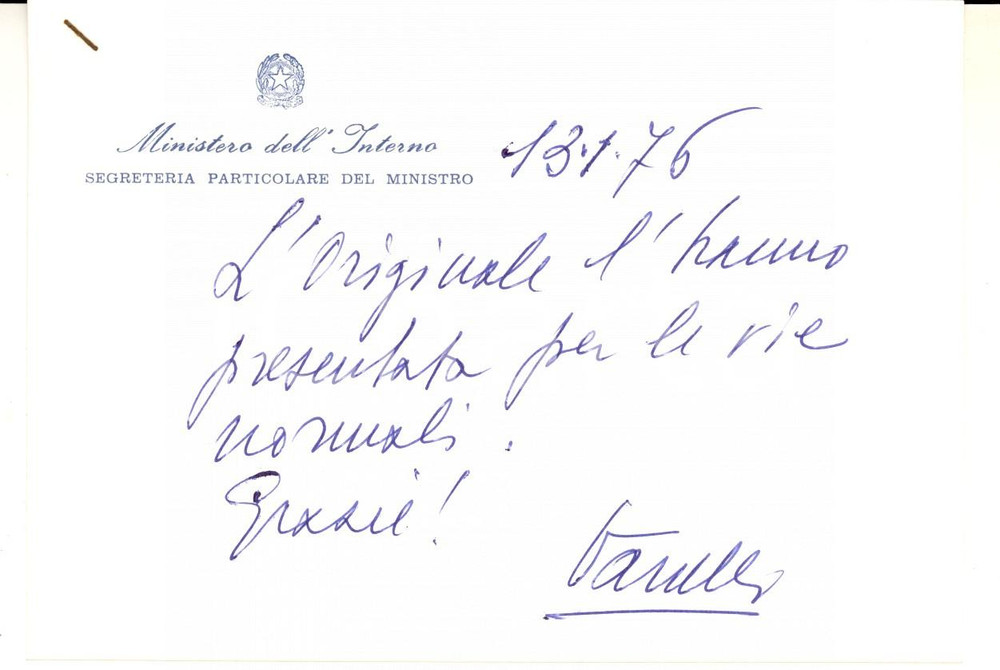 Ministero dell'Interno
SEGRETERIA PARTICOLARE DEL MINISTRO
13·1·76
L'Originale l'hanno
presentata per le vie
normali.
Grazie!